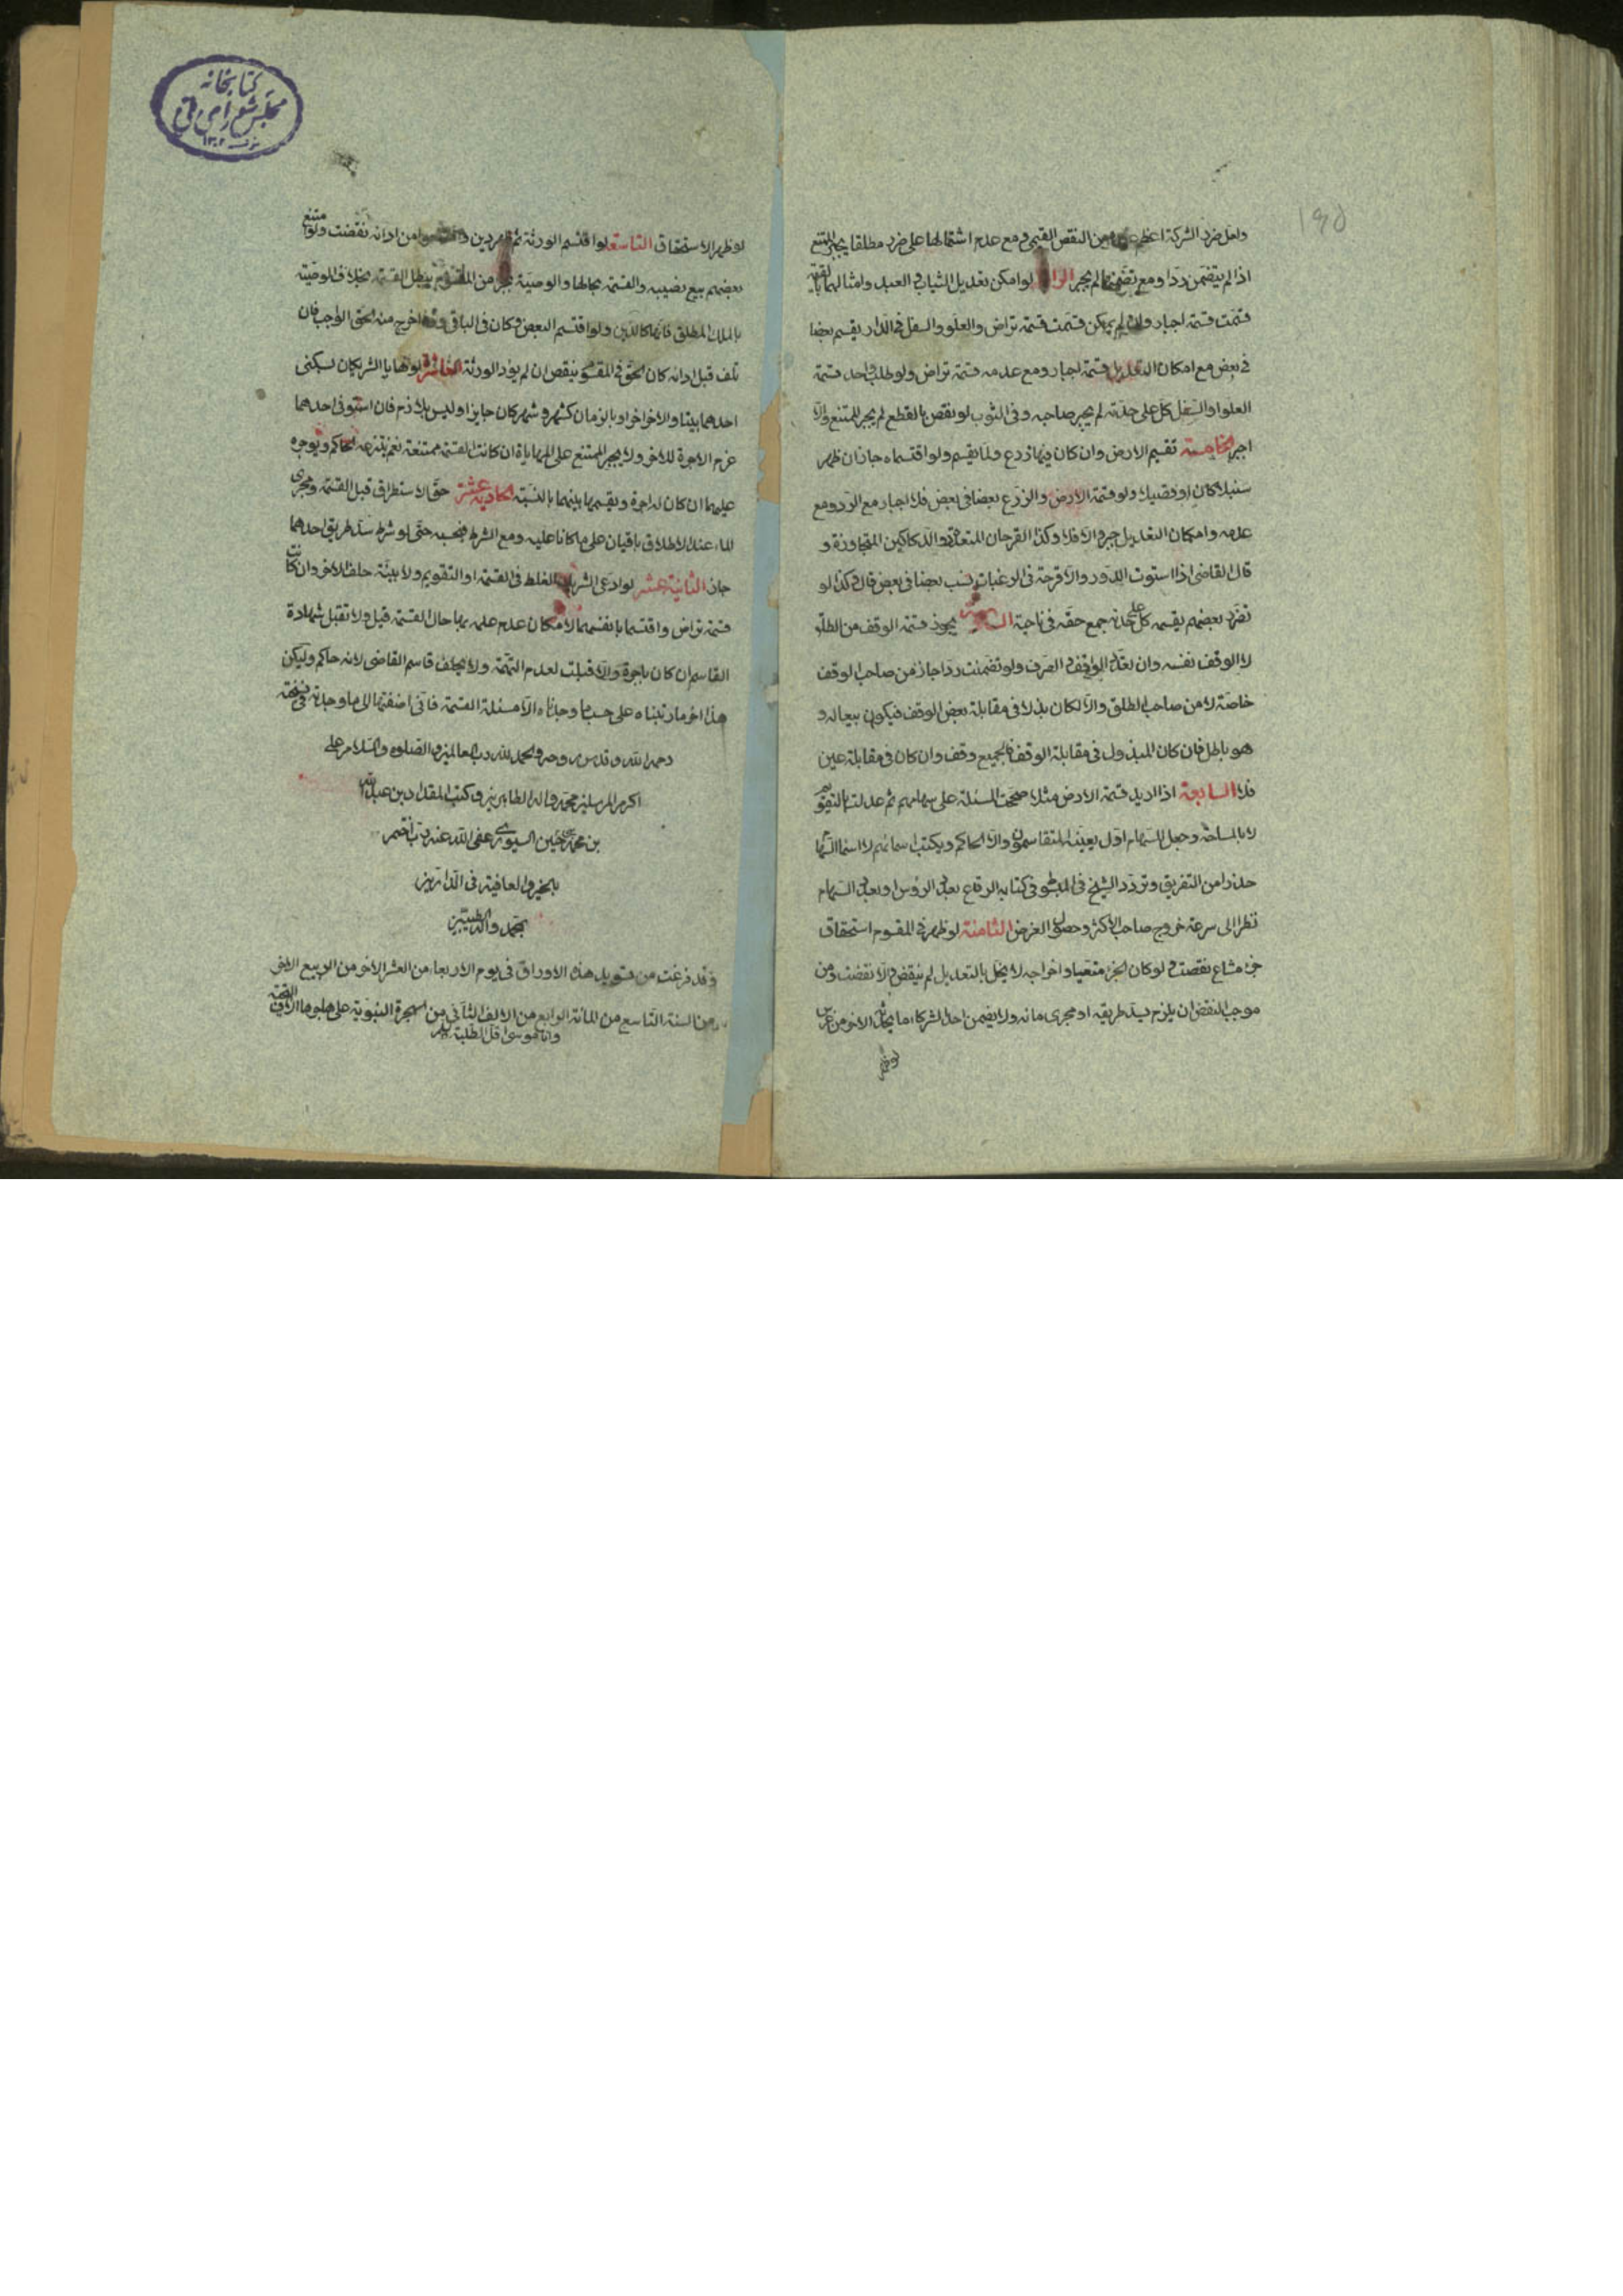 ولعل ضرر الشركة اعظم من النقص القيمي ومع عدم اشتمالها على ضرر مطلقا يجبر الممتنع
اذا لم يتضمن ردا ومع تضمنها لم يجبر الرابعة لو امكن تعديل الثياب والعبيد وامثالهما بالقيمة
قسمت قسمة اجبار وان لم يمكن قسمت قسمة تراض والعلو والسفل في الدار يقسم بعضا
في بعض مع امكان التعديل قسمة اجبار ومع عدمه قسمة تراض ولو طلب واحد قسمة
العلو او السفل كل على حدته لم يجبر صاحبه وفي الثوب لو نقص بالقطع لم يجبر الممتنع والا
اجبر الخامسة تقسيم الارض وان كان فيها زرع ولما يقسم ولو اقتسماه جاز ان ظهر
سنبلا كان او قصيلا ولو قسمة الارض والزرع بعضا في بعض فلا اجبار مع الرد ومع
عدمه وامكان التعديل جبر والا فلا وكذا القرحان المتعددة والدكاكين المتجاورة و
قال القاضي اذا استوت الدور والاقرحة في الرغبات قسمت بعضا في بعض قال وكذا لو
تضرر بعضهم بقسمة كل على حدته جمع حقه في ناحية السادسة يجوز قسمة الوقف من الطلق
لا الوقف نفسه وان تعدد الواقف والمصرف ولو تضمنت ردا جاز من صاحب الوقف
خاصة لا من صاحب الطلق والا لكان بذلا في مقابلة بعض الوقف فيكون بيعا له و
هو باطل فان كان المبذول في مقابلة الوقف فالجميع وقف وان كان في مقابلة عين
فلا السابعة اذا اريد قسمة الارض مثلا صححت المسئلة على سهامهم ثم عدلت بالتقويم
لا بالمساحة وجعل للسهام اول يعينه المتقاسمون والا الحاكم ويكتب اسمائهم لا اسماء السهام
حذرا من التفريق وتردد الشيخ في المبسوط في كتابه الرقاع بعدد الرؤس او بعدد السهام
نظرا الى سرعة خروج صاحب الاكثر وحصول الغرض الثامنة لو ظهر في المقسوم استحقاق
جزء مشاع نقضت ولو كان الجزء متعينا واخراجه لا يخل بالتعديل لم ينقض والا نقضت ومن
موجب النقض ان يلزم بسد طريقه او مجرى مائه ولا يضمن احد الشركاء ما يحدثه الاخر من غرس
لو ظهر
لو ظهر الاستحقاق التاسعة لو اقتسم الورثة ثم ظهر دين وامتنعوا من ادائه نقضت ولو امتنع
بعضهم بيع نصيبه والقسمة بحالها والوصية بجزء من المقسوم يبطل القسمة بخلاف الوصية
بالملك المطلق فانها كالدين ولو اقتسم البعض وكان في الباقي وفاء اخرج منه الحق الواجب فان
تلف قبل ادائه كان الحق في المقسوم ينقض ان لم يؤد الورثة العاشرة لو تهايا الشريكان بسكنى
احدهما بيتا والاخر اخر او بالزمان كشهر وشهر كان جايزا وليس بلازم فان استوفى احدهما
غرم الاجرة للاخر ولا يجبر الممتنع على المهاياة ان كانت القسمة ممتنعة نعم ينتزعه الحاكم ويوجره
عليهما ان كان له اجرة ويقسمها بينهما بالنسبة الحادية عشر حق الاستطراق قبل القسمة ومجرى
الماء عند الاطلاق باقيان على ما كانا عليه ومع الشرط بحسبه حتى لو شرط سد طريق احدهما
جاز الثانية عشر لو ادعى الشريك الغلط في القسمة او التقويم ولا بينة حلف الاخر وان كانت
قسمة تراض واقتسما بانفسهما لامكان عدم علمه بها حال القسمة قيل ولا تقبل شهادة
القاسم ان كان باجرة والا قبلت لعدم التهمة ولا يحلف قاسم القاضي لانه حاكم وليكن
هذا اخر ما رتبناه على حسب ما وجدناه الا مسئلة القسمة فاني اضفتها الى ما وجدته في نسخته
رحمه الله وقدس روحه والحمد لله رب العالمين والصلوة والسلام على
اكرم المرسلين محمد واله الطاهرين وكتب المقداد بن عبد الله
بن محمد بن حسين السيوري عفى الله عنه رب اختم
بالخير والعافية في الدارين
بمحمد واله الطيبين
وقد فرغت من تسويد هذه الاوراق في يوم الاربعاء من العشر الاخر من الربيع الاخر
من السنة التاسع من المائة الرابع من الالف الثاني من الهجرة النبوية على هاجرها الاف التحية
وانا موسى اقل الطلبة
كتابخانه
مجلس شورای ملی
۱۳۰۲
195